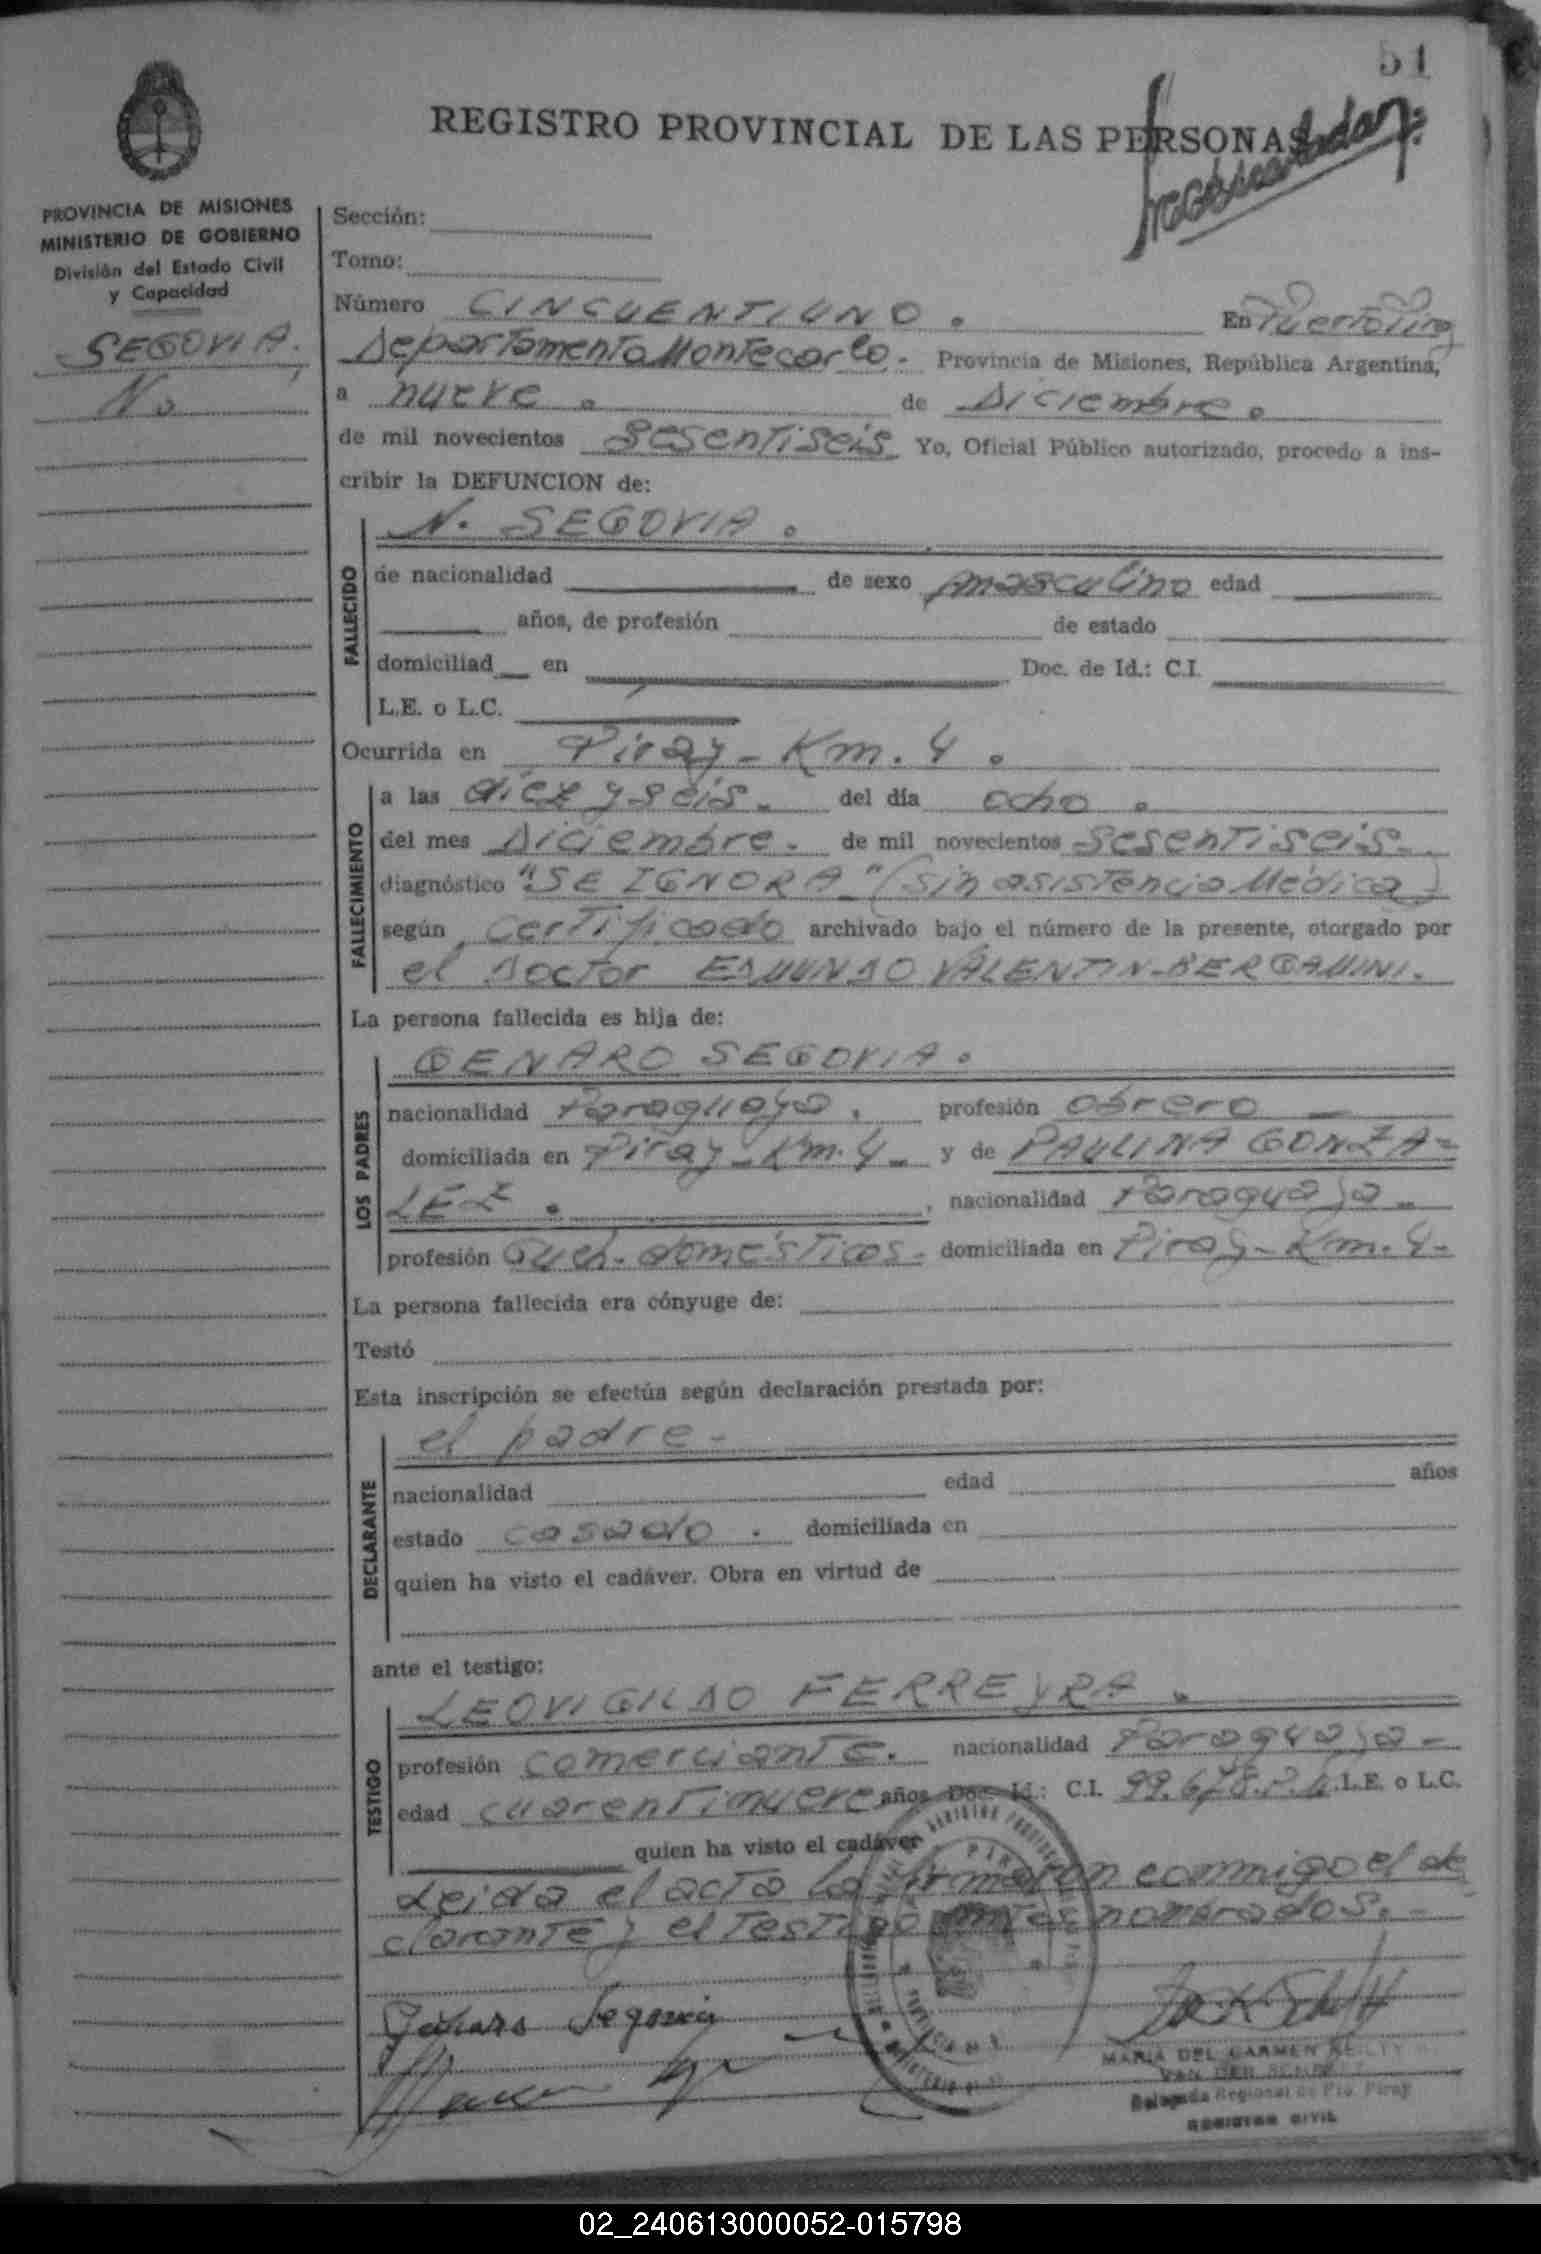 51
REGISTRO PROVINCIAL DE LAS PERSONAS
PROVINCIA DE MISIONES
MINISTERIO DE GOBIERNO
División del Estado Civil
y Capacidad
SEGOVIA.
N.
Sección:
Tomo:
Número CINCUENTIUNO. En Puerto Piray
Departamento Montecarlo. Provincia de Misiones, República Argentina,
a nueve. de Diciembre.
de mil novecientos sesentiseis Yo, Oficial Público autorizado, procedo a ins-
cribir la DEFUNCION de:
FALLECIDO
N. SEGOVIA.
de nacionalidad de sexo masculino edad
años, de profesión de estado
domiciliad en Doc. de Id.: C.I.
L.E. o L.C.
Ocurrida en Piray - Km. 4.
FALLECIMIENTO
a las diez y seis. del día ocho.
del mes Diciembre. de mil novecientos sesentiseis.
diagnóstico "SE IGNORA" (sin asistencia Médica)
según certificado archivado bajo el número de la presente, otorgado por
el Doctor EDMUNDO VALENTIN-BERGAMINI.
La persona fallecida es hija de:
LOS PADRES
GENARO SEGOVIA.
nacionalidad Paraguaya. profesión obrero -
domiciliada en Piray - Km. 4 - y de PAULINA GONZA-
LEZ. , nacionalidad Paraguaya -
profesión Queh. domésticos. domiciliada en Piray - Km. 4 -
La persona fallecida era cónyuge de:
Testó
Esta inscripción se efectúa según declaración prestada por:
DECLARANTE
el padre -
nacionalidad edad años
estado casado. domiciliada en
quien ha visto el cadáver. Obra en virtud de
ante el testigo:
TESTIGO
LEOVIGILDO FERREYRA.
profesión comerciante. nacionalidad Paraguaya -
edad cuarentinueve años Doc. Id.: C.I. L.E. o L.C.
quien ha visto el cadáver
Leida el acta la firmaron conmigo el de
clarante y el testigo antes nombrados. -
Genaro Segovia
MARIA DEL CARMEN
Delegada Regional de Pto. Piray
REGISTRO CIVIL
02_240613000052-015798